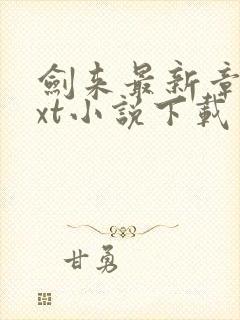 劍来最新章
xt小說下載
甘勇